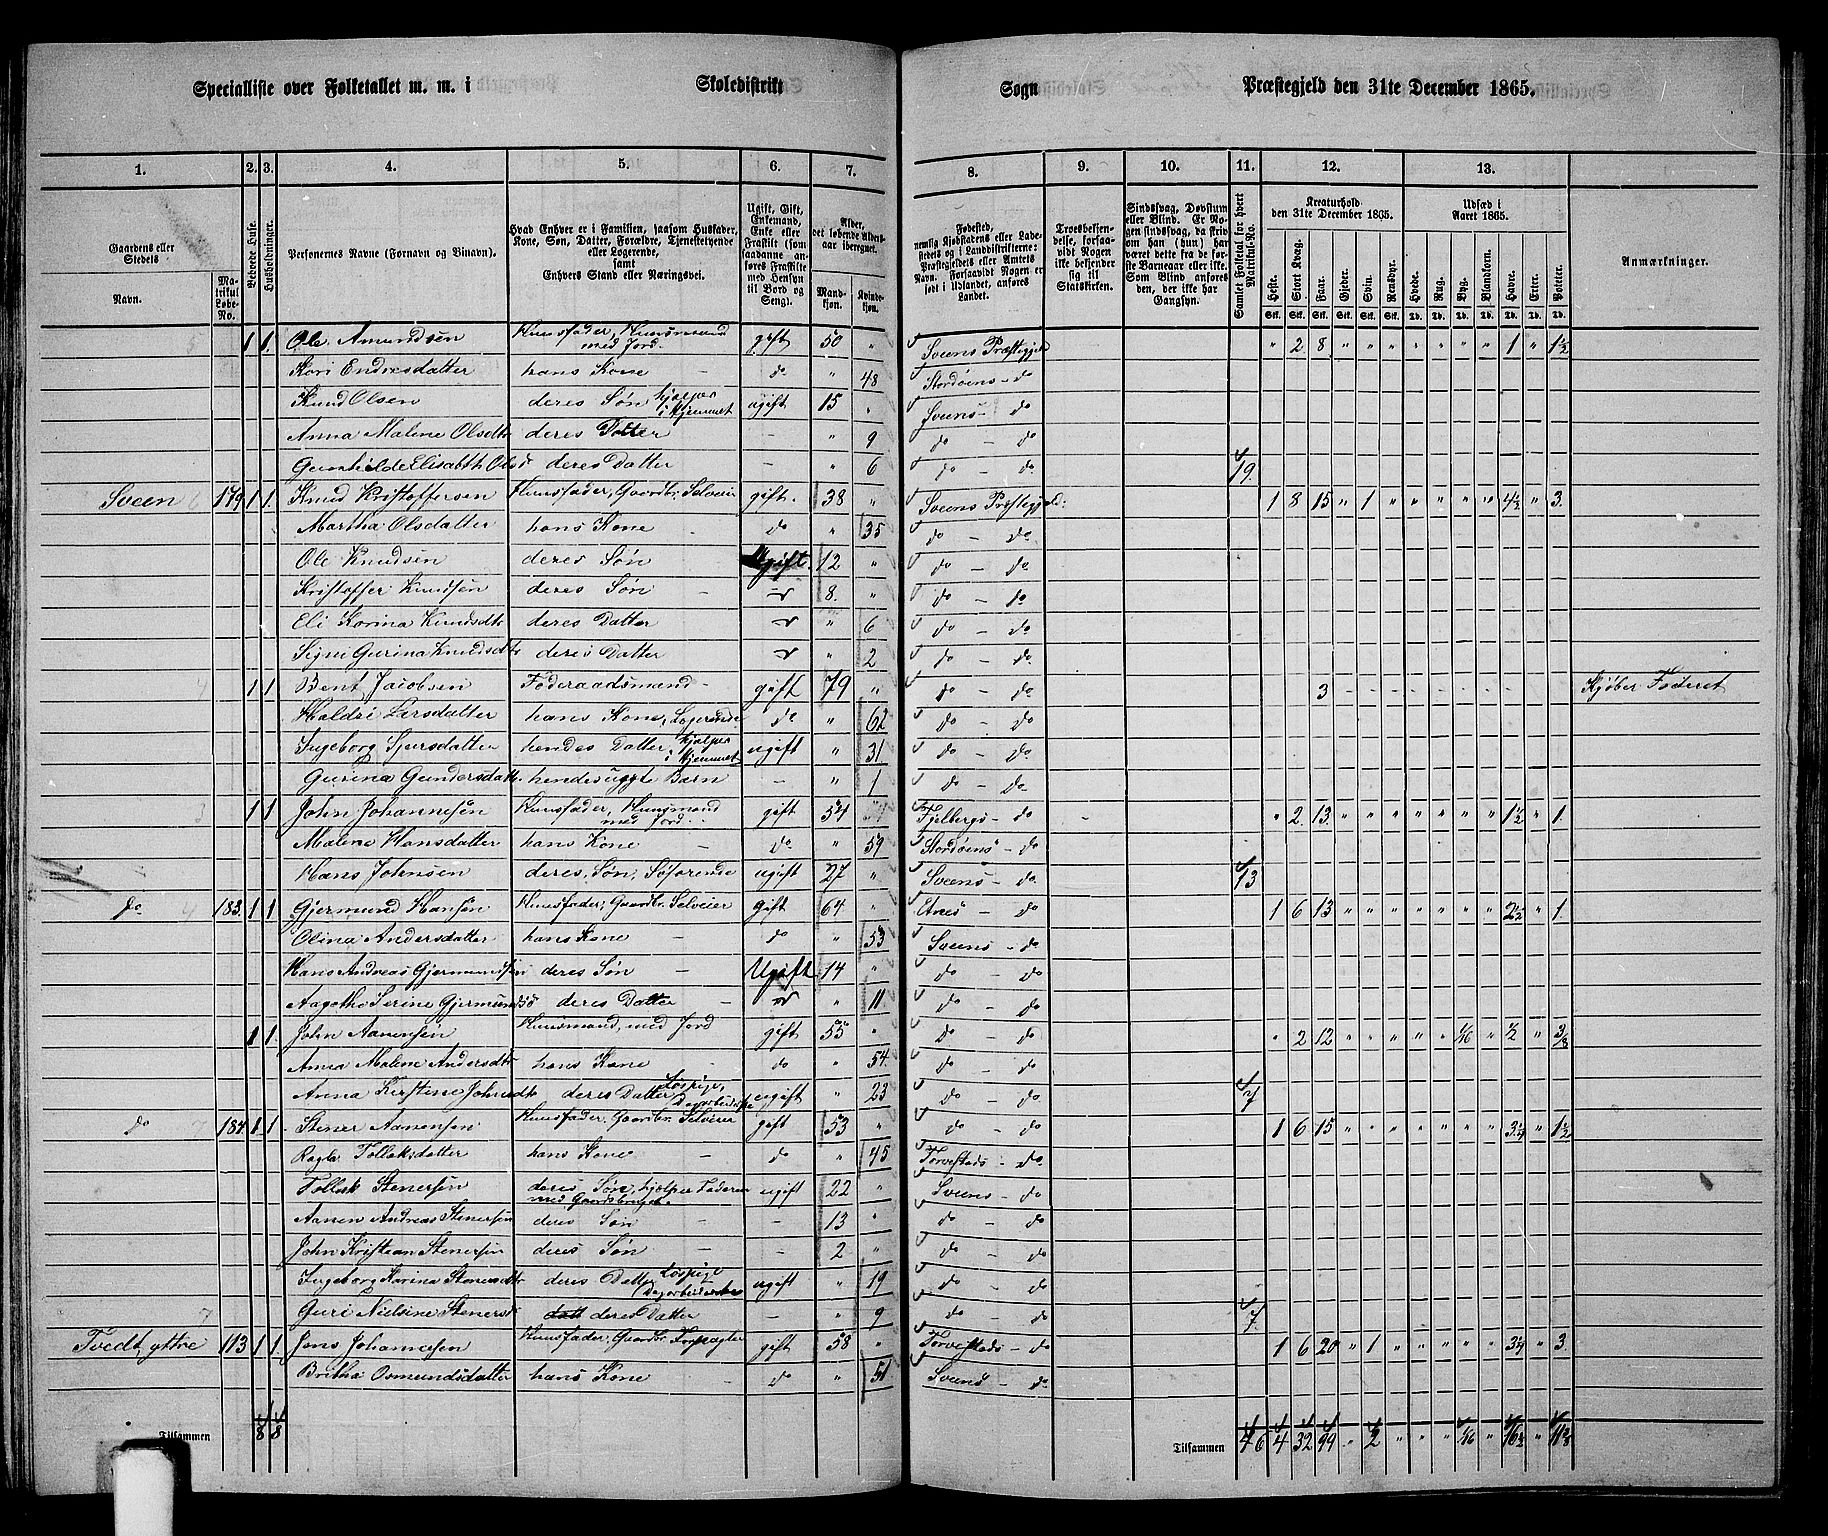 Specialliste over Folketallet m. m. i Skoledistrikt Sogn Præstegjeld den 31te December 1865.
1. 2. 3. 4. 5. 6. 7. 8. 9. 10. 11. 12. 13.
Gaardens eller Stedets
Navn.
Matrikul Løbe-No.
Beboede Huse.
Husholdninger.
Personernes Navne (Fornavn og Binavn).
Hvad Enhver er i Familien, saasom Husfader, Kone, Søn, Datter, Forældre, Tjenestetyende eller Logerende, samt Enhvers Stand eller Næringsvei.
Ugift, Gift, Enkemand, Enke eller Fraskilt (som saadanne anføres Fraskilte med Hensyn til Bord og Seng).
Alder, det løbende Aldersaar iberegnet.
Mandkjøn. Kvindekjøn.
Fødested, nemlig Kjøbstadens eller Ladestedets og i Landdistrikterne: Præstegjeldets eller Amtets Navn. Forsaavidt Nogen er født i Udlandet, anføres Landet.
Troesbekjendelse, forsaavidt Nogen ikke bekjender sig til Statskirken.
Sindssvag, Døvstum eller Blind. Er Nogen sindssvag, da skriv om han (hun) har været dette fra de første Barneaar eller ikke. Som Blind anføres den, der ikke har Gangsyn.
Samlet Folketal for hvert Matrikul-No.
Kreaturhold den 31te December 1865.
Udsæd i Aaret 1865.
Heste. Stort Kvæg. Faar. Gjeder. Svin. Rensdyr. Hvede. Rug. Byg. Blandkorn. Havre. Erter. Poteter.
Anmærkninger.
1 1. Ole Amundsen Huusfader, Huusmand med Jord. gift 50 " Sveens Præstegjeld " 2 8 " " " " " " " 1 " 1½
Kari Endresdatter hans Kone do " 48 Stordøens do
Knud Olsen deres Søn hjelper i Hjemmet ugift 15 " Sveens do
Anna Malene Olsdtr deres Datter – " 9 do – do
Gunhilde Elisabth Olsd deres Datter – " 6 do – do 19.
Sveen 179 1 1. Knud Kristoffersen Huusfader, Gaardbr. Selveier gift. 38 " Sveens Præstegjeld: 1 8 15 " 1 " " " " " 4½ " 3.
Martha Olsdatter hans Kone do " 35 do – do
Ole Knudsen deres Søn Ugift. 12 " do – do
Kristoffer Knudsen deres Søn 8. " do – do
Eli Korina Knudsdtr deres Datter " 6 do – do
Signi Gurina Knudsdtr deres Datter " 2 do – do
1 1 Bent Jacobsen Føderaadsmand gift 79 " do – do 3 Kjøber Foderet
Haldri Larsdatter hans Kone, Logerende do " 62 do – do
Ingeborg Sjursdatter hendes Datter, hjelper i Hjemmet ugift " 31 do – do
Gurina Gundersdatt. hendes uggte Barn – " 1 do – do
1 1 John Johannesen Huusfader, Huusmand med Jord gift 54 Fjelbergs do " 2. 13. " " " " " " " 1½ " 1.
Malene Hansdatter hans Kone do " 59 Stordøens do
Hans Johnsen deres, Søn, Søfarende ugift 27 " Sveens do 13
do 183. 1 1 Gjermund Hansen Huusfader, Gaardbr. Selveier gift 64 " Etnes do 1 6 13 " " " " " " " 2½ " 1.
Olina Andersdatter hans Kone do " 53 Sveens do
Hans Andreas Gjermundsen deres Søn Ugift 14 " do – do
Aagotha Serine Gjermundsd deres Datter " 11. do – do
1 1. John Aanensen Huusmand, med Jord gift 55 " do – do " 2 12 " " " " " 1/16 " ½ " 3/8
Anna Malene Andersdtr hans Kone do " 54. do – do
Anna Kirstine Johnsdtr deres Datter Løspige, Dagarbeiderske ugift " 23 do – do 7
do 184. 1 1. Stener Aanensen Huusfader, Gaardbr. Selveier gift 53 " do – do 1 6 15 " " " " " " " 3¼ " 1½
Ragla Tollaksdatter hans Kone do " 45 Torvestads do.
Tollak Stenersen deres Søn, hjelper Faderen med Gaardsbruget. ugift 22 " Sveens do
Aanen Andreas Stenersen deres Søn – 13 " do – do
John Kristian Stenersen deres Søn – 2 " do – do
Ingeborg Karina Stenersdtr deres Datter Løspige Dagarbeiderske ugift " 19 do – do
Guri Nielsine Stenersd deres Datter – " 9 do – do 7.
Tvedt yttre 113 1 1. Jens Johannesen Huusfader, Gaardbr. Forpagter gift 58 " Torvestads do 1 6 20 " 1 " " " " " 3¼ " 3.
Britha Osmundsdatter hans Kone do " 51 Sveens do
Tilsammen 8 8
Tilsammen 46 4 32 99 " 2 " " " 1/16 " 16½ " 11 3/8